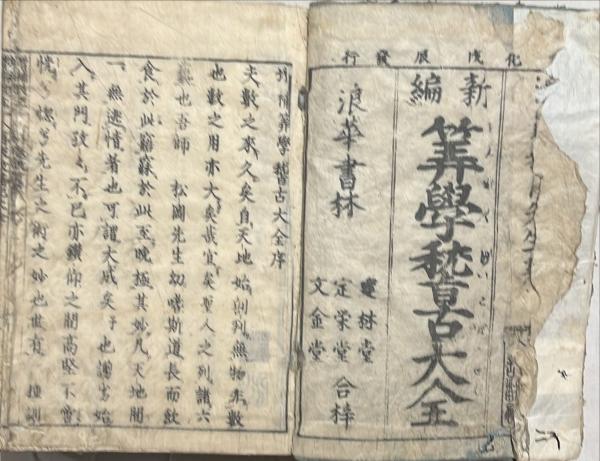 化戊辰發行
新編
筭學稽古大全
浪華書林
林堂
定栄堂
文金堂
合梓
筭學稽古大全序
夫數之來久矣自天地始剖列無物非數
也數之用亦大矣哉宜矣聖人之列諸六
藝也吾師 松岡先生幼嗜斯道長而飲
食於此寤寐於此至晩極其妙凡天地間
一無逃情者也可謂大成矣予也謭劣始
入其門孜々不已亦鑽仰之間高堅不啻
先生之術之妙也世有